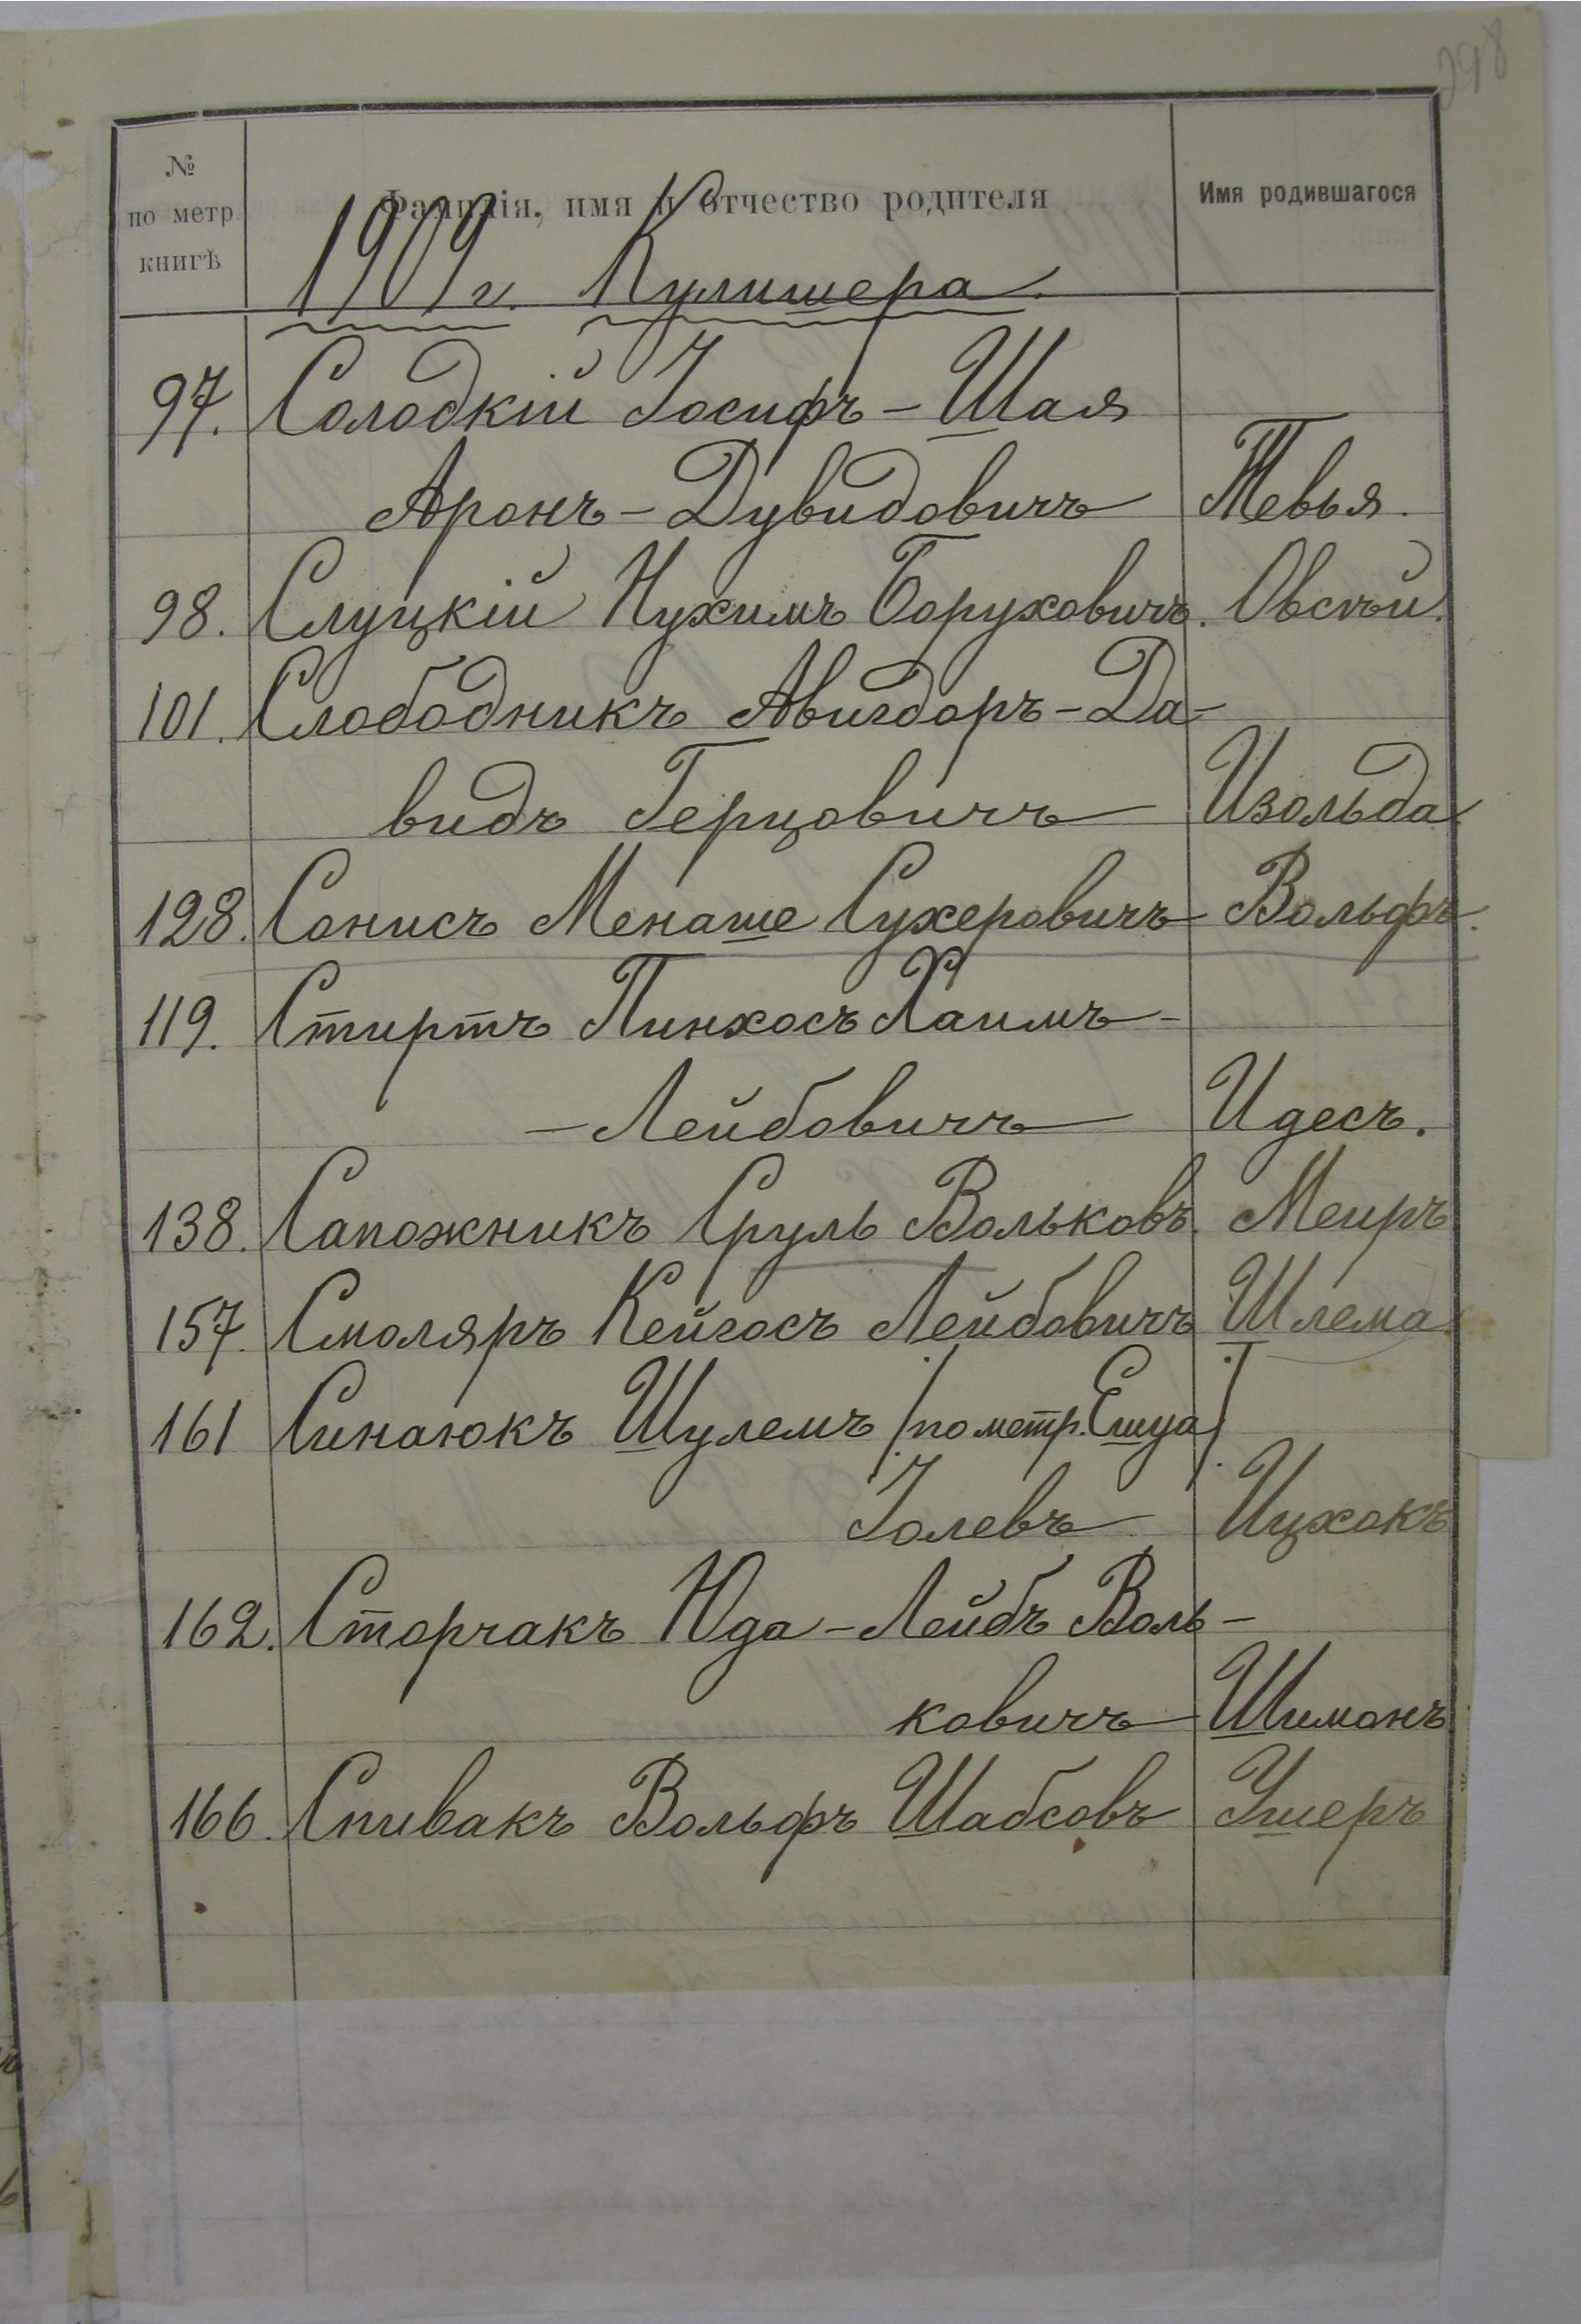 298
№ по метр книгѣ
Фамилія, имя и отчество родителя
Имя родившагося
1909 г. Кулишера.
97. Солодкій Іосифъ - Шая
Аронъ - Дувидовичъ Тевья.
98. Слуцкій Нухимъ Боруховичъ. Овсѣй.
101. Слободникъ Авигдоръ - Да-
видъ Герцовичъ Изольда
128. Сонисъ Менаше Сухеровичъ Вольфъ.
119. Стиртъ Пинхосъ Хаимъ -
- Лейбовичъ Идесъ.
138. Сапожникъ Сруль Вольковъ. Меиръ
157. Смоляръ Кейгосъ Лейбовичъ Шлема
161 Синаюкъ Шулемъ /по метр. Ешуа/
Іолевъ Ицхокъ
162. Сторчакъ Юда - Лейбъ Воль-
ковичъ Шимонъ
166. Спивакъ Вольфъ Шабсовъ Ушеръ